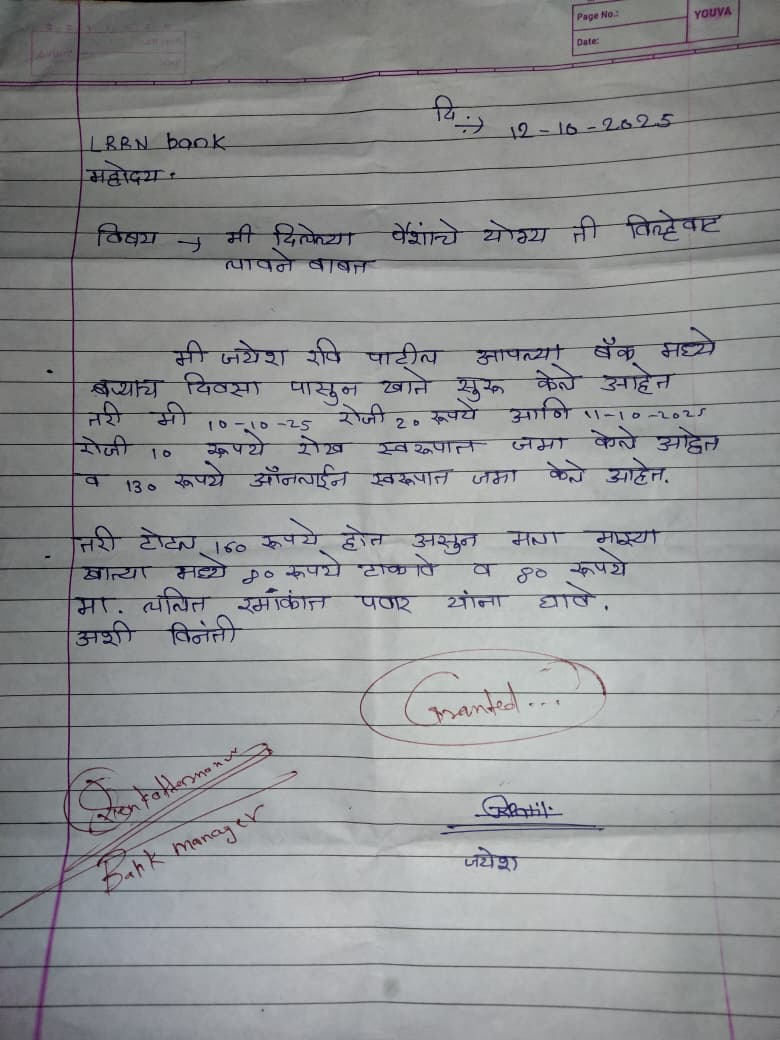 Page No.:
YOUVA
Date:
दि. :→ 12-10-2025
LRBN bank
महोदय.
विषय → मी दिलेल्या पैशांचे योग्य ती विल्हेवाट
लावने बाबत
मी जयेश रवि पाटील आपल्या बँक मध्ये
बऱ्याच दिवसा पासुन खाते सुरू केले आहेत
तरी मी 10-10-25 रोजी 20 रूपये आणि 11-10-2025
रोजी 10 रूपये रोख स्वरूपात जमा केले आहेत
व 130 रूपये ऑनलाईन स्वरूपात जमा केले आहेत.
तरी टोटल 160 रूपये होत असुन मला माझ्या
खात्या मध्ये 80 रूपये टाकावे व 80 रूपये
मा. ललित रमाकांत पवार यांना द्यावे.
अशी विनंती
Granted...
Bank manager
जयेश